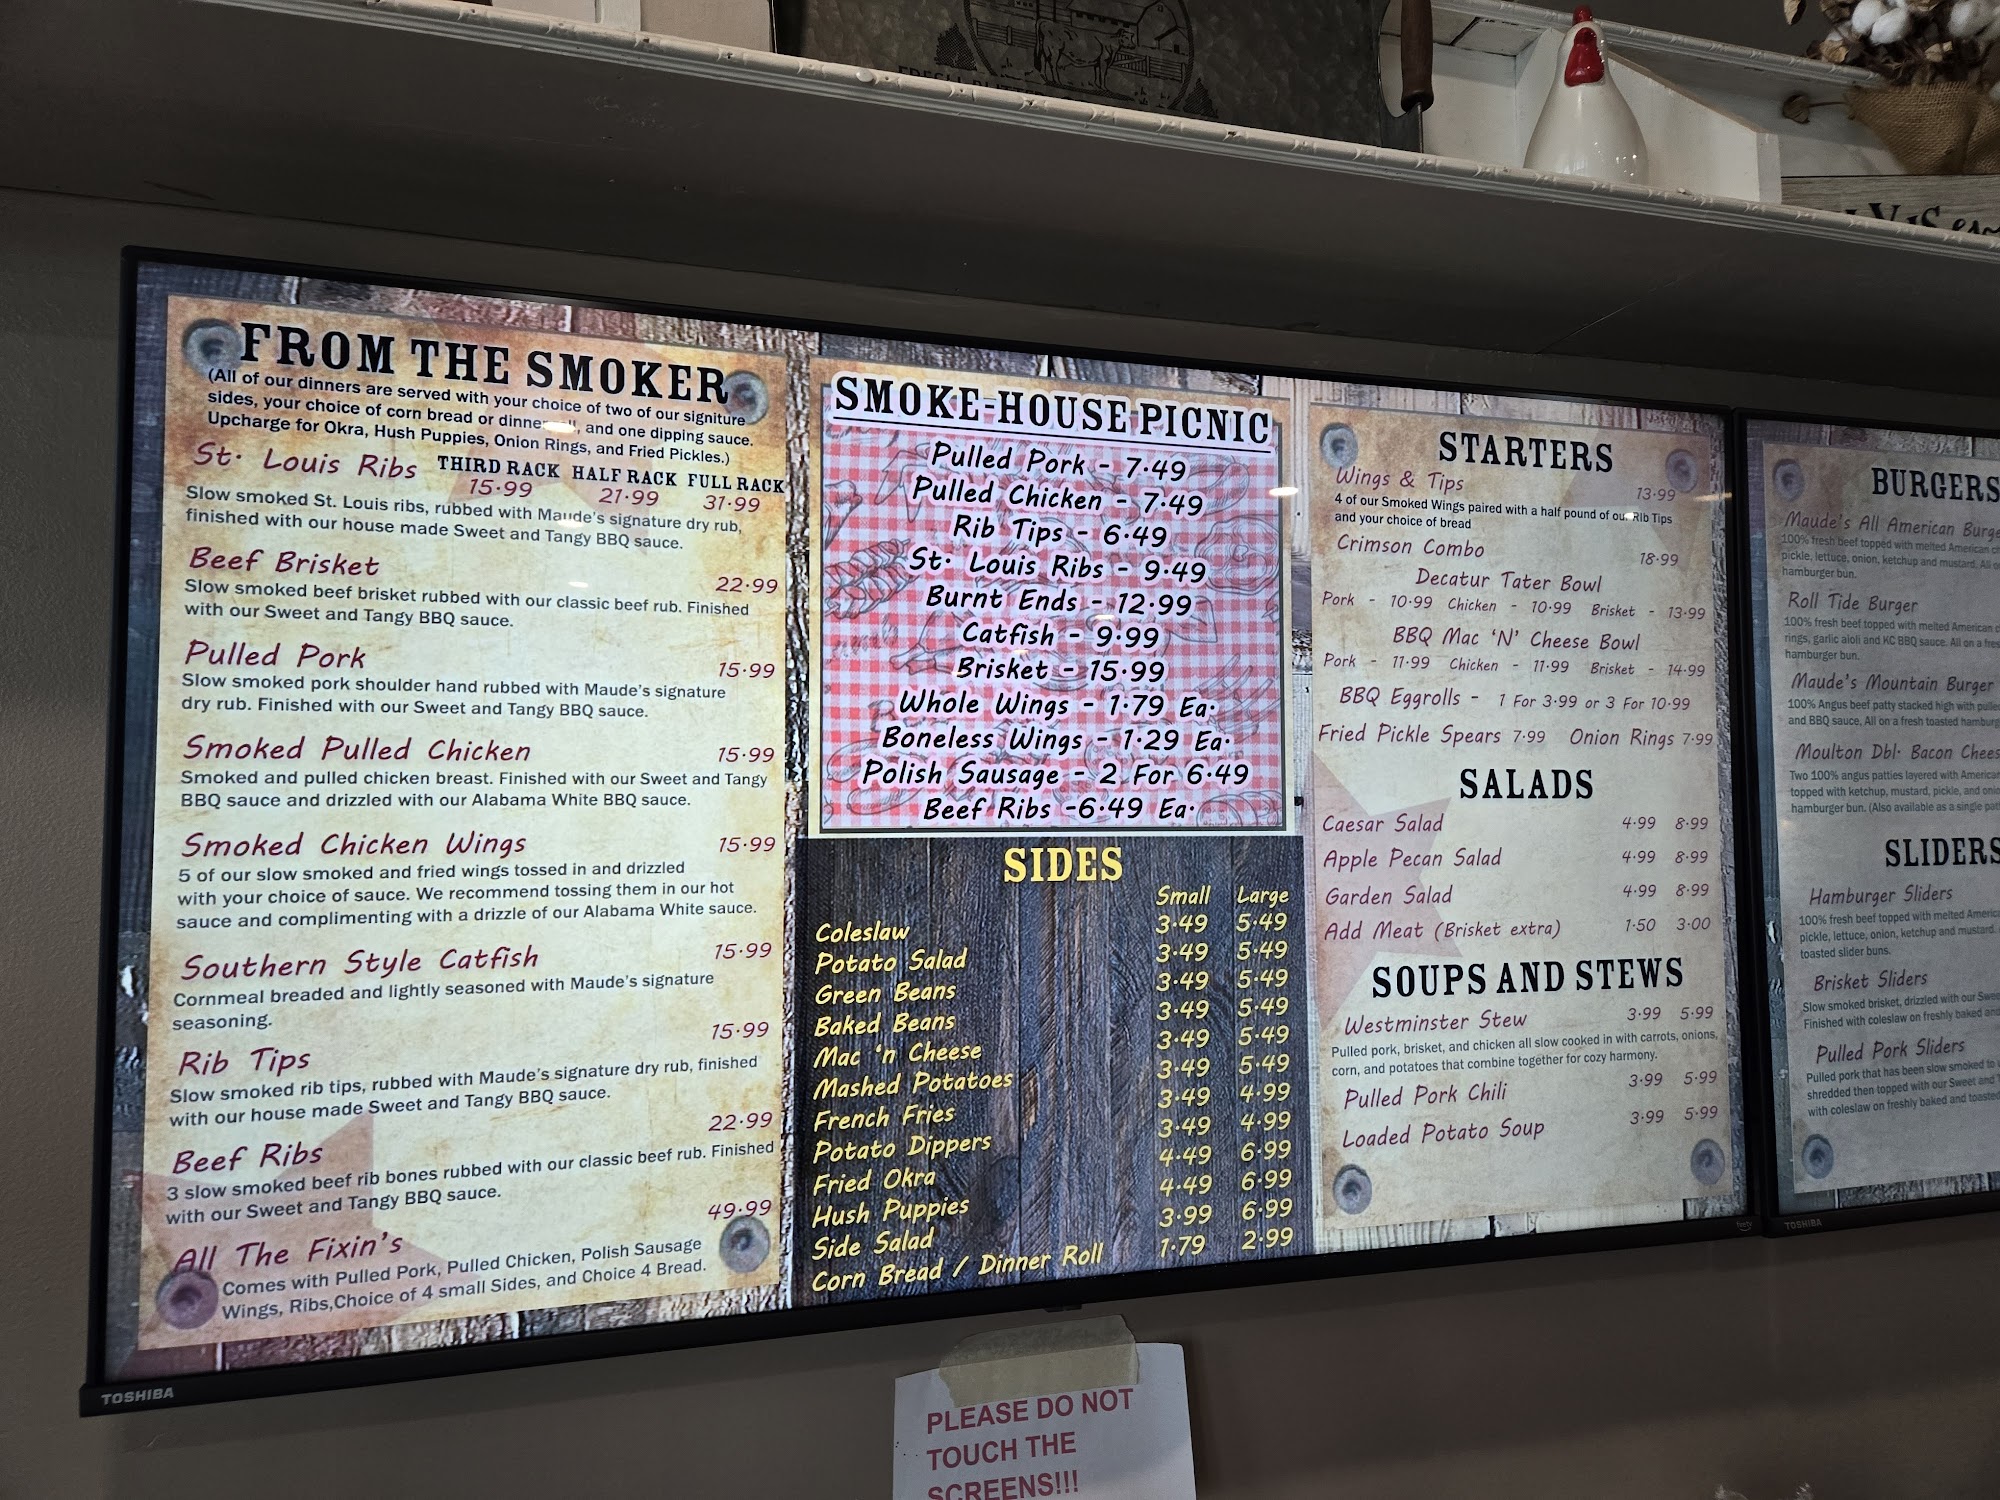 FROM THE SMOKER
(All of our dinners are served with your choice of two of our signiture
sides, your choice of corn bread or dinner, and one dipping sauce.
Upcharge for Okra, Hush Puppies, Onion Rings, and Fried Pickles.)
St. Louis Ribs THIRD RACK HALF RACK FULL RACK
15.99 21.99 31.99
Slow smoked St. Louis ribs, rubbed with Maude's signature dry rub,
finished with our house made Sweet and Tangy BBQ sauce.
Beef Brisket 22.99
Slow smoked beef brisket rubbed with our classic beef rub. Finished
with our Sweet and Tangy BBQ sauce.
Pulled Pork 15.99
Slow smoked pork shoulder hand rubbed with Maude's signature
dry rub. Finished with our Sweet and Tangy BBQ sauce.
Smoked Pulled Chicken 15.99
Smoked and pulled chicken breast. Finished with our Sweet and Tangy
BBQ sauce and drizzled with our Alabama White BBQ sauce.
Smoked Chicken Wings 15.99
5 of our slow smoked and fried wings tossed in and drizzled
with your choice of sauce. We recommend tossing them in our hot
sauce and complimenting with a drizzle of our Alabama White sauce.
Southern Style Catfish 15.99
Cornmeal breaded and lightly seasoned with Maude's signature
seasoning.
Rib Tips 15.99
Slow smoked rib tips, rubbed with Maude's signature dry rub, finished
with our house made Sweet and Tangy BBQ sauce.
Beef Ribs 22.99
3 slow smoked beef rib bones rubbed with our classic beef rub. Finished
with our Sweet and Tangy BBQ sauce.
All The Fixin's 49.99
Comes with Pulled Pork, Pulled Chicken, Polish Sausage
Wings, Ribs,Choice of 4 small Sides, and Choice 4 Bread.
SMOKE-HOUSE PICNIC
Pulled Pork - 7.49
Pulled Chicken - 7.49
Rib Tips - 6.49
St. Louis Ribs - 9.49
Burnt Ends - 12.99
Catfish - 9.99
Brisket - 15.99
Whole Wings - 1.79 Ea.
Boneless Wings - 1.29 Ea.
Polish Sausage - 2 For 6.49
Beef Ribs -6.49 Ea.
SIDES
Small Large
Coleslaw 3.49 5.49
Potato Salad 3.49 5.49
Green Beans 3.49 5.49
Baked Beans 3.49 5.49
Mac 'n Cheese 3.49 5.49
Mashed Potatoes 3.49 5.49
French Fries 3.49 4.99
Potato Dippers 3.49 4.99
Fried Okra 4.49 6.99
Hush Puppies 4.49 6.99
Side Salad 3.99 6.99
Corn Bread / Dinner Roll 1.79 2.99
STARTERS
Wings & Tips 13.99
4 of our Smoked Wings paired with a half pound of our Rib Tips
and your choice of bread
Crimson Combo 18.99
Decatur Tater Bowl
Pork - 10.99 Chicken - 10.99 Brisket - 13.99
BBQ Mac 'N' Cheese Bowl
Pork - 11.99 Chicken - 11.99 Brisket - 14.99
BBQ Eggrolls - 1 For 3.99 or 3 For 10.99
Fried Pickle Spears 7.99 Onion Rings 7.99
SALADS
Caesar Salad 4.99 8.99
Apple Pecan Salad 4.99 8.99
Garden Salad 4.99 8.99
Add Meat (Brisket extra) 1.50 3.00
SOUPS AND STEWS
Westminster Stew 3.99 5.99
Pulled pork, brisket, and chicken all slow cooked in with carrots, onions,
corn, and potatoes that combine together for cozy harmony.
Pulled Pork Chili 3.99 5.99
Loaded Potato Soup 3.99 5.99
BURGERS
Maude's All American Burge
100% fresh beef topped with melted American
pickle, lettuce, onion, ketchup and mustard. All
hamburger bun.
Roll Tide Burger
100% fresh beef topped with melted American
rings, garlic aioli and KC BBQ sauce. All on a
hamburger bun.
Maude's Mountain Burger
100% Angus beef patty stacked high with
and BBQ sauce, All on a fresh toasted
Moulton Dbl. Bacon
Two 100% angus patties layered with American
topped with ketchup, mustard, pickle, and
hamburger bun. (Also available as a single
SLIDERS
Hamburger Sliders
100% fresh beef topped with melted
pickle, lettuce, onion, ketchup and mustard.
toasted slider buns.
Brisket Sliders
Slow smoked brisket, drizzled with our
Finished with coleslaw on freshly baked
Pulled Pork Sliders
Pulled pork that has been slow smoked to
shredded then topped with our Sweet and
with coleslaw on freshly baked and toasted
TOSHIBA
TOSHIBA
PLEASE DO NOT
TOUCH THE
SCREENS!!!